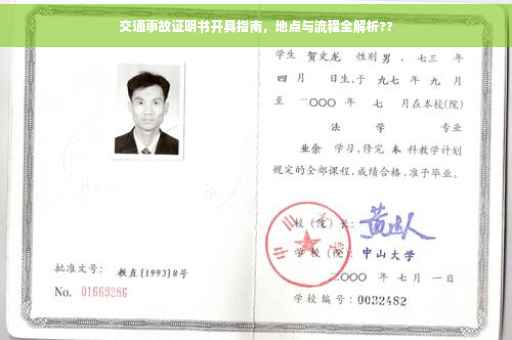 交通事故证明书开具指南，地点与流程全解析??
学生 贺文龙 性别 男 、七三 年
四 月 日生，于 九七 年 九 月
至 二〇〇〇 年 七 月在本校(院)
法 学 专业
业余 学习，修完 本 科教学计划
规定的全部课程，成绩合格，准予毕业。
校 (院) 长：
学 校 (院)： 中山大学
二〇〇〇 年 七 月 一 日
学校编号：0032482
批准文号： 教直[1993]8号
No. 01669286